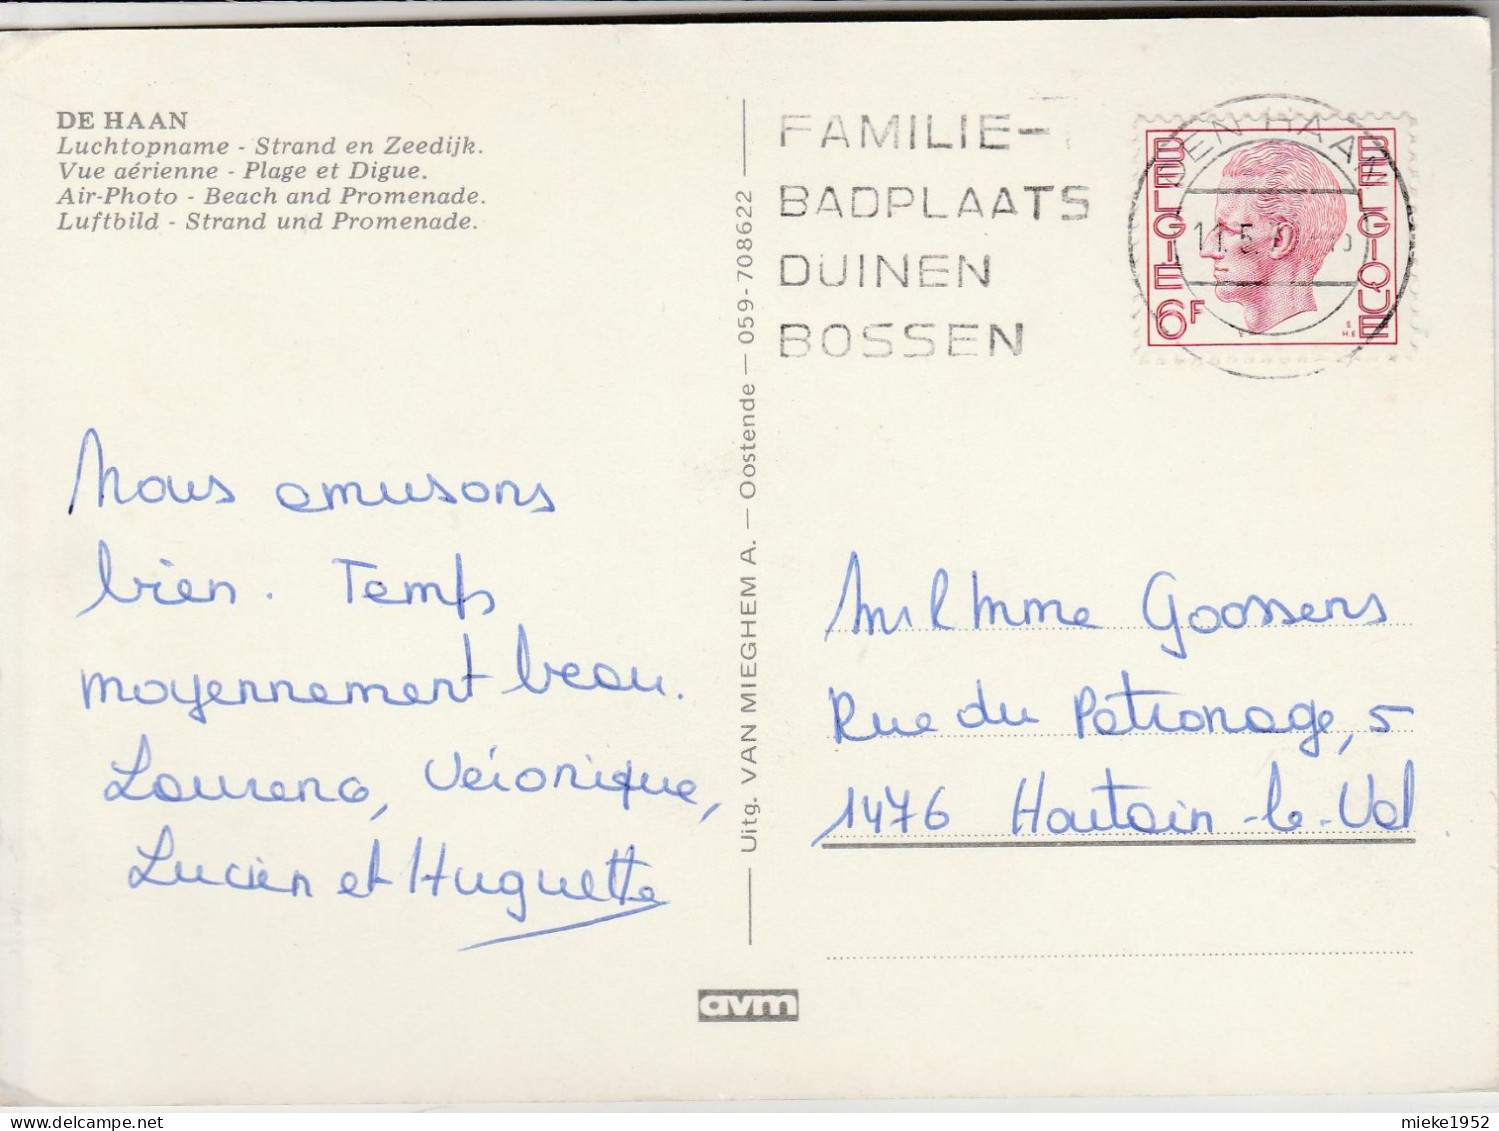 DE HAAN
Luchtopname - Strand en Zeedijk.
Vue aérienne - Plage et Digue.
Air-Photo - Beach and Promenade.
Luftbild - Strand und Promenade.
Nous amusons
bien. Temps
moyennement beau.
Laurena, Véronique,
Lucien et Huguette
Uitg. VAN MIEGHEM A. — Oostende — 059-708622
avm
FAMILIE-
BADPLAATS
DUINEN
BOSSEN
DEN HAAN
11.5.
BELGIE
BELGIQUE
6F
Mr Mme Goossens
Rue du Patronage, 5
1476 Houtain-le-Val.
mieke1952